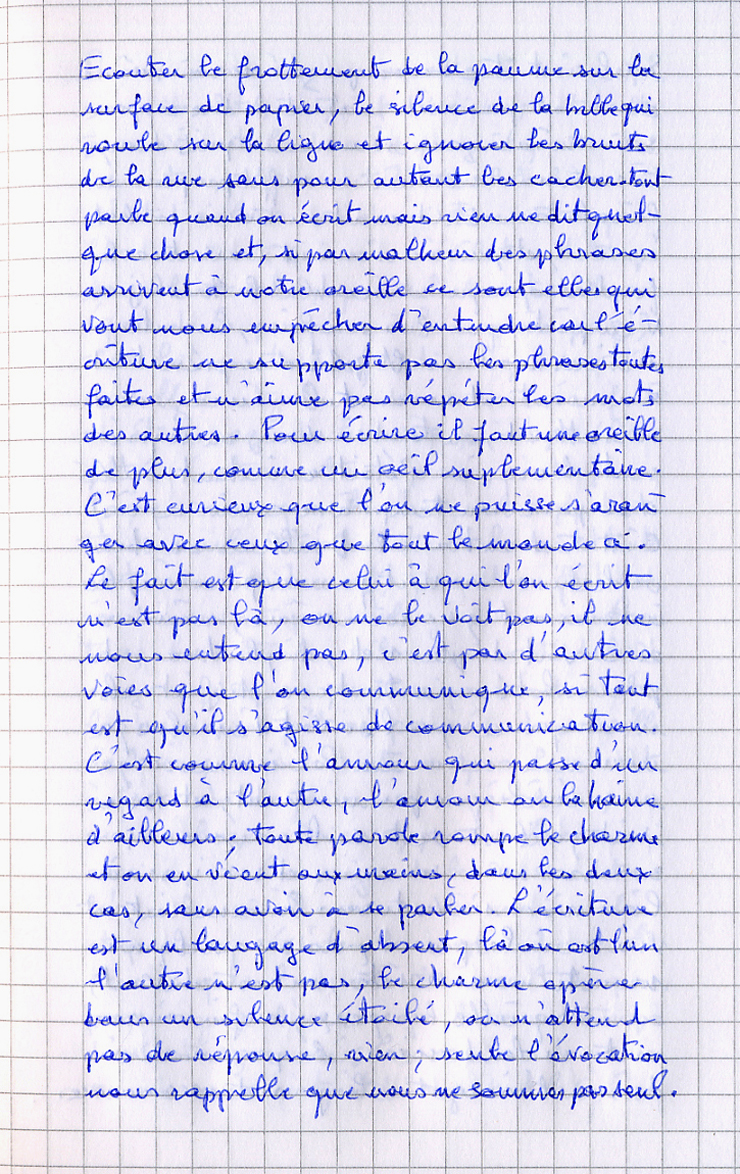 Ecouter le frottement de la paume sur la
surface de papier, le silence de la bille qui
roule sur la ligne et ignorer les bruits
de la rue sans pour autant les cacher. tout
parle quand on écrit mais rien ne dit quel-
que chose et, si par malheur des phrases
arrivent à notre oreille ce sont elles qui
vont nous empêcher d'entendre car l'é-
criture ne supporte pas les phrases toutes
faites et n'aime pas répéter les mots
des autres. Pour écrire il faut une oreille
de plus, comme un oeil suplementaire.
C'est curieux que l'on ne puisse s'aran
ger avec ceux que tout le monde a.
Le fait est que celui à qui l'on écrit
n'est pas là, on ne le voit pas, il ne
nous entend pas, c'est par d'autres
voies que l'on communique, si tant
est qu'il s'agisse de communication.
C'est comme l'amour qui passe d'un
regard à l'autre, l'amour ou la haine
d'ailleurs ; toute parole rompe le charme
et on en vient aux mains, dans les deux
cas, sans avoir à se parler. L'écriture
est un langage d'absent, là où est l'un
l'autre n'est pas, le charme opère
dans un silence étoilé, on n'attend
pas de réponse, rien ; seule l'évocation
nous rappelle que nous ne sommes pas seul.